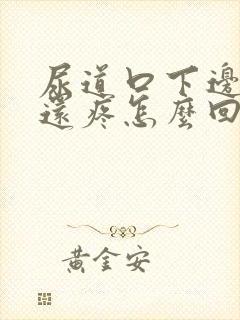 尿道口下邊
還疼怎麼回
黃金安